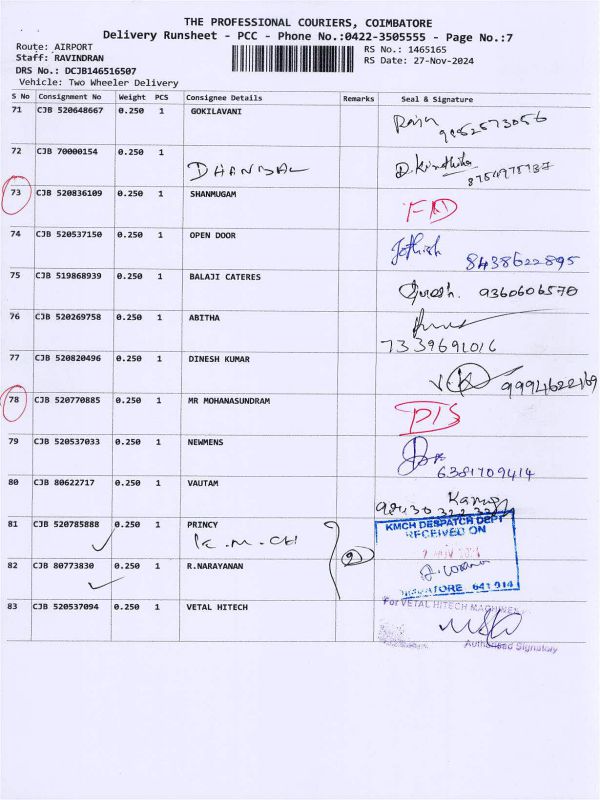 THE PROFESSIONAL COURIERS, COIMBATORE
Delivery Runsheet - PCC - Phone No.:0422-3505555 - Page No.:7
Route: AIRPORT
RS No.: 1465165
Staff: RAVINDRAN
RS Date: 27-Nov-2024
DRS No.: DCJB146516507
Vehicle: Two Wheeler Delivery
S No Consignment No Weight PCS Consignee Details Remarks Seal & Signature
71 CJB 520648667 0.250 1 GOKILAVANI
Raju
72 CJB 70000154 0.250 1
DHANBAL
73 CJB 520836109 0.250 1 SHANMUGAM
74 CJB 520537150 0.250 1 OPEN DOOR
8438622895
75 CJB 519868939 0.250 1 BALAJI CATERES
9360606570
76 CJB 520269758 0.250 1 ABITHA
7339691016
77 CJB 520820496 0.250 1 DINESH KUMAR
99941622169
78 CJB 520770885 0.250 1 MR MOHANASUNDRAM
79 CJB 520537033 0.250 1 NEWMENS
6381709414
80 CJB 80622717 0.250 1 VAUTAM
81 CJB 520785888 0.250 1 PRINCY
K.M.CH
KMCH DESPATCH DEPT
RECEIVED ON
2
82 CJB 80773830 0.250 1 R.NARAYANAN
641 014
83 CJB 520537094 0.250 1 VETAL HITECH
For VETAL HITECH MACHINES
Authorised Signatory